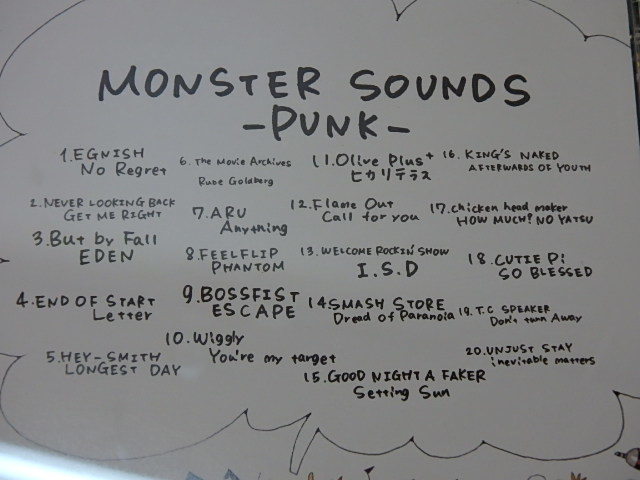 MONSTER SOUNDS
-PUNK-
1.EGNISH
No Regret
2.NEVER LOOKING BACK
GET ME RIGHT
3.But by Fall
EDEN
4.END OF START
Letter
5.HEY-SMITH
LONGEST DAY
6.The Movie Archives
Rube Goldberg
7.ARU
Anything
8.FEELFLIP
PHANTOM
9.BOSSFIST
ESCAPE
10.Wiggly
You're my target
11.Olive Plus+
ヒカリテラス
12.Flame Out
Call for you
13.WELCOME ROCKIN' SHOW
I.S.D
14.SMASH STORE
Dread of Paranoia
15.GOOD NIGHT A FAKER
Setting Sun
16.KING'S NAKED
AFTERWARDS OF YOUTH
17.chicken head maker
HOW MUCH? NO YATSU
18.CUTIE P!
SO BLESSED
19.T.C SPEAKER
Don't turn Away
20.UNJUST STAY
inevitable matters